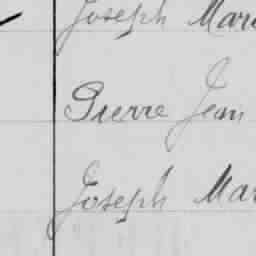 Joseph Mari
Pierre Jean
Joseph Mar